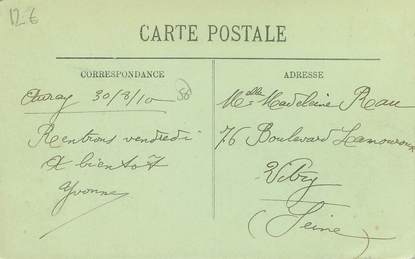 12 €
CARTE POSTALE
CORRESPONDANCE
Auray 30/8/10
50
Rentrons vendredi
A bientot
Yvonne
ADRESSE
Melle Madeleine Rau
76 Boulevard Lamouroux
Vitry
(Seine)